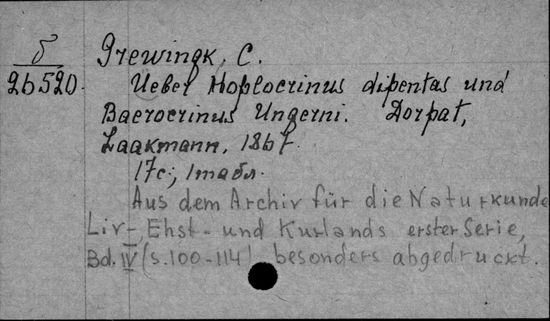 б
26520.
Grewingk, C.
Ueber Hoplocrinus dipentas und
Baerocrinus Ungerni. Dorpat,
Laakmann, 1867.
17с.; 1табл.
Aus dem Archiv für die Naturkunde
Liv-, Ehst- und Kurlands erster Serie,
Bd. IV (s.100-114) besonders abgedruckt.